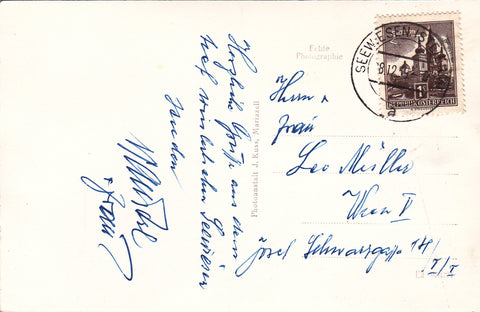 Herzliche Grüße aus dem
tief winterlichen Seewiesen
senden
+ Frau
Echte
Photographie
Photoanstalt J. Kuss, Mariazell
SEEWIESEN
REPUBLIK ÖSTERREICH
Herrn +
Frau
Leo Müller
Wien V
Josef Schwarzgasse 14/
I/I